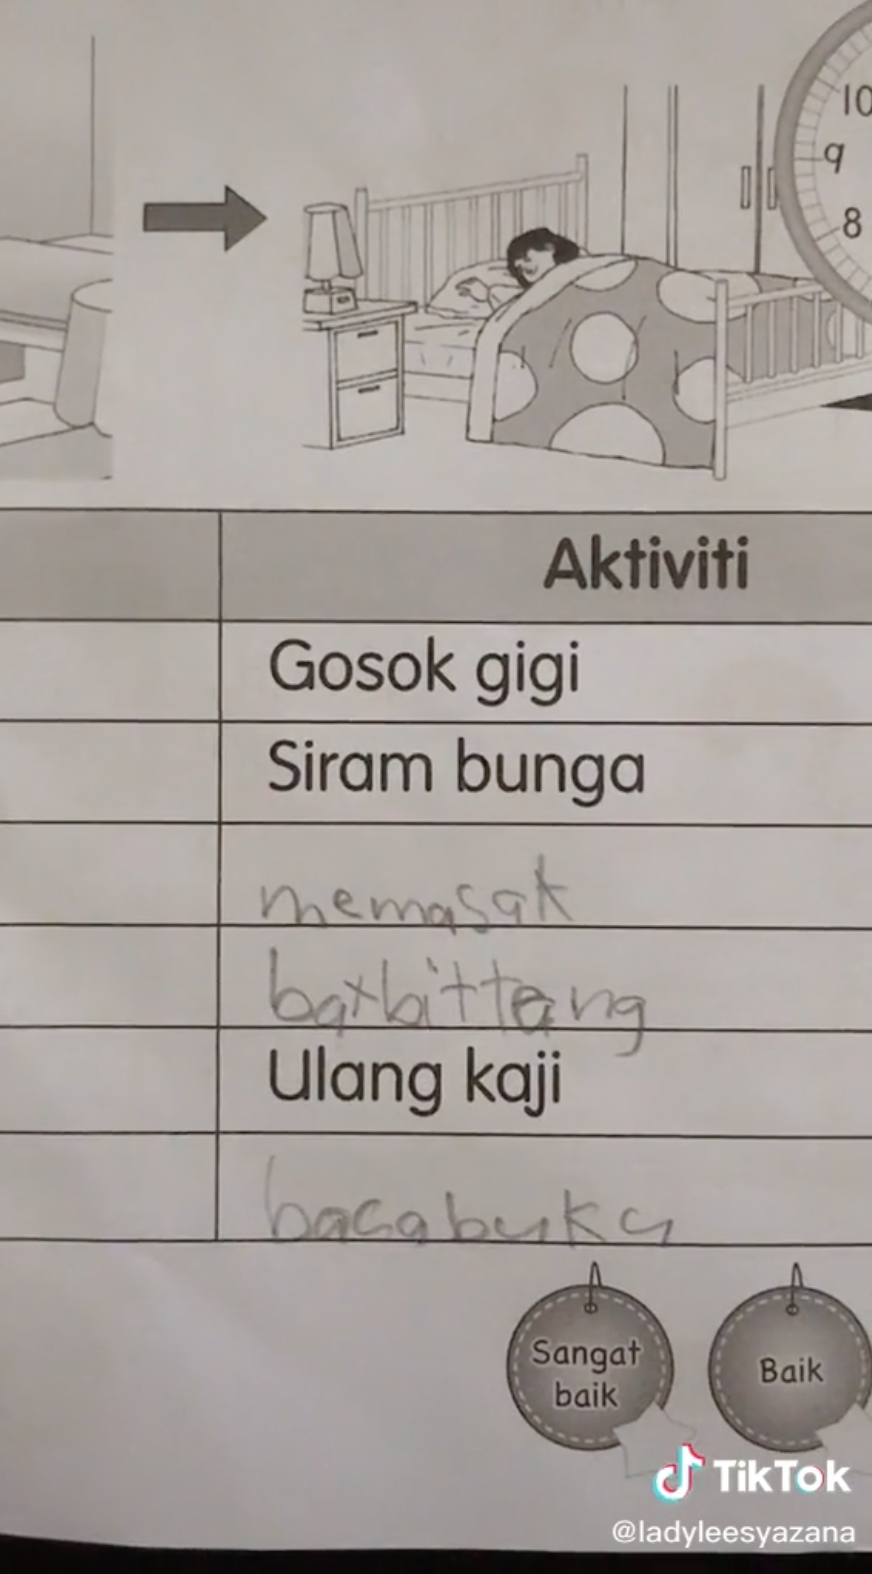 10
9
8
Aktiviti
Gosok gigi
Siram bunga
memasak
Ulang kaji
baca buku
Sangat
baik
Baik
TikTok
@ladyleesyazana